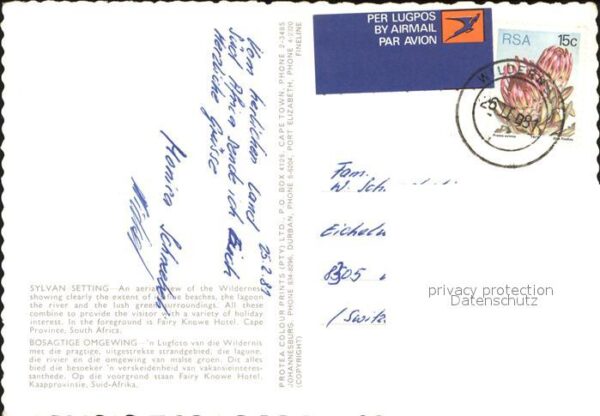 PER LUGPOS
BY AIRMAIL
PAR AVION
RSA 15c
WILDERN
Vom herrlichen Land
Süd Afrika sende ich Euch
herzliche Grüsse
25.2.81
Fam.
W. Sch
Eicheln
8305
/Switz.
privacy protection
Datenschutz
SYLVAN SETTING—An aerial view of the Wilderness
showing clearly the extent of the beaches, the lagoon
the river and the lush green surroundings. All these
combine to provide the visitor with a variety of holiday
interest. In the foreground is Fairy Knowe Hotel, Cape
Province, South Africa.
BOSAGTIGE OMGEWING—'n Lugfoto van die Wildernis
met die pragtige, uitgestrekte strandgebied, die lagune,
die rivier en die omgewing van malse groen. Dit alles
bied die besoeker 'n verskeidenheid van vakansieinteres-
santhede. Op die voorgrond staan Fairy Knowe Hotel,
Kaapprovinsie, Suid-Afrika.
PROTEA COLOUR PRINTS (PTY) LTD., P.O. BOX 4126, CAPE TOWN, PHONE 2-3485
JOHANNESBURG, PHONE 834-8296, DURBAN, PHONE 6-5204, PORT ELIZABETH, PHONE
(COPYRIGHT)
FINELINE